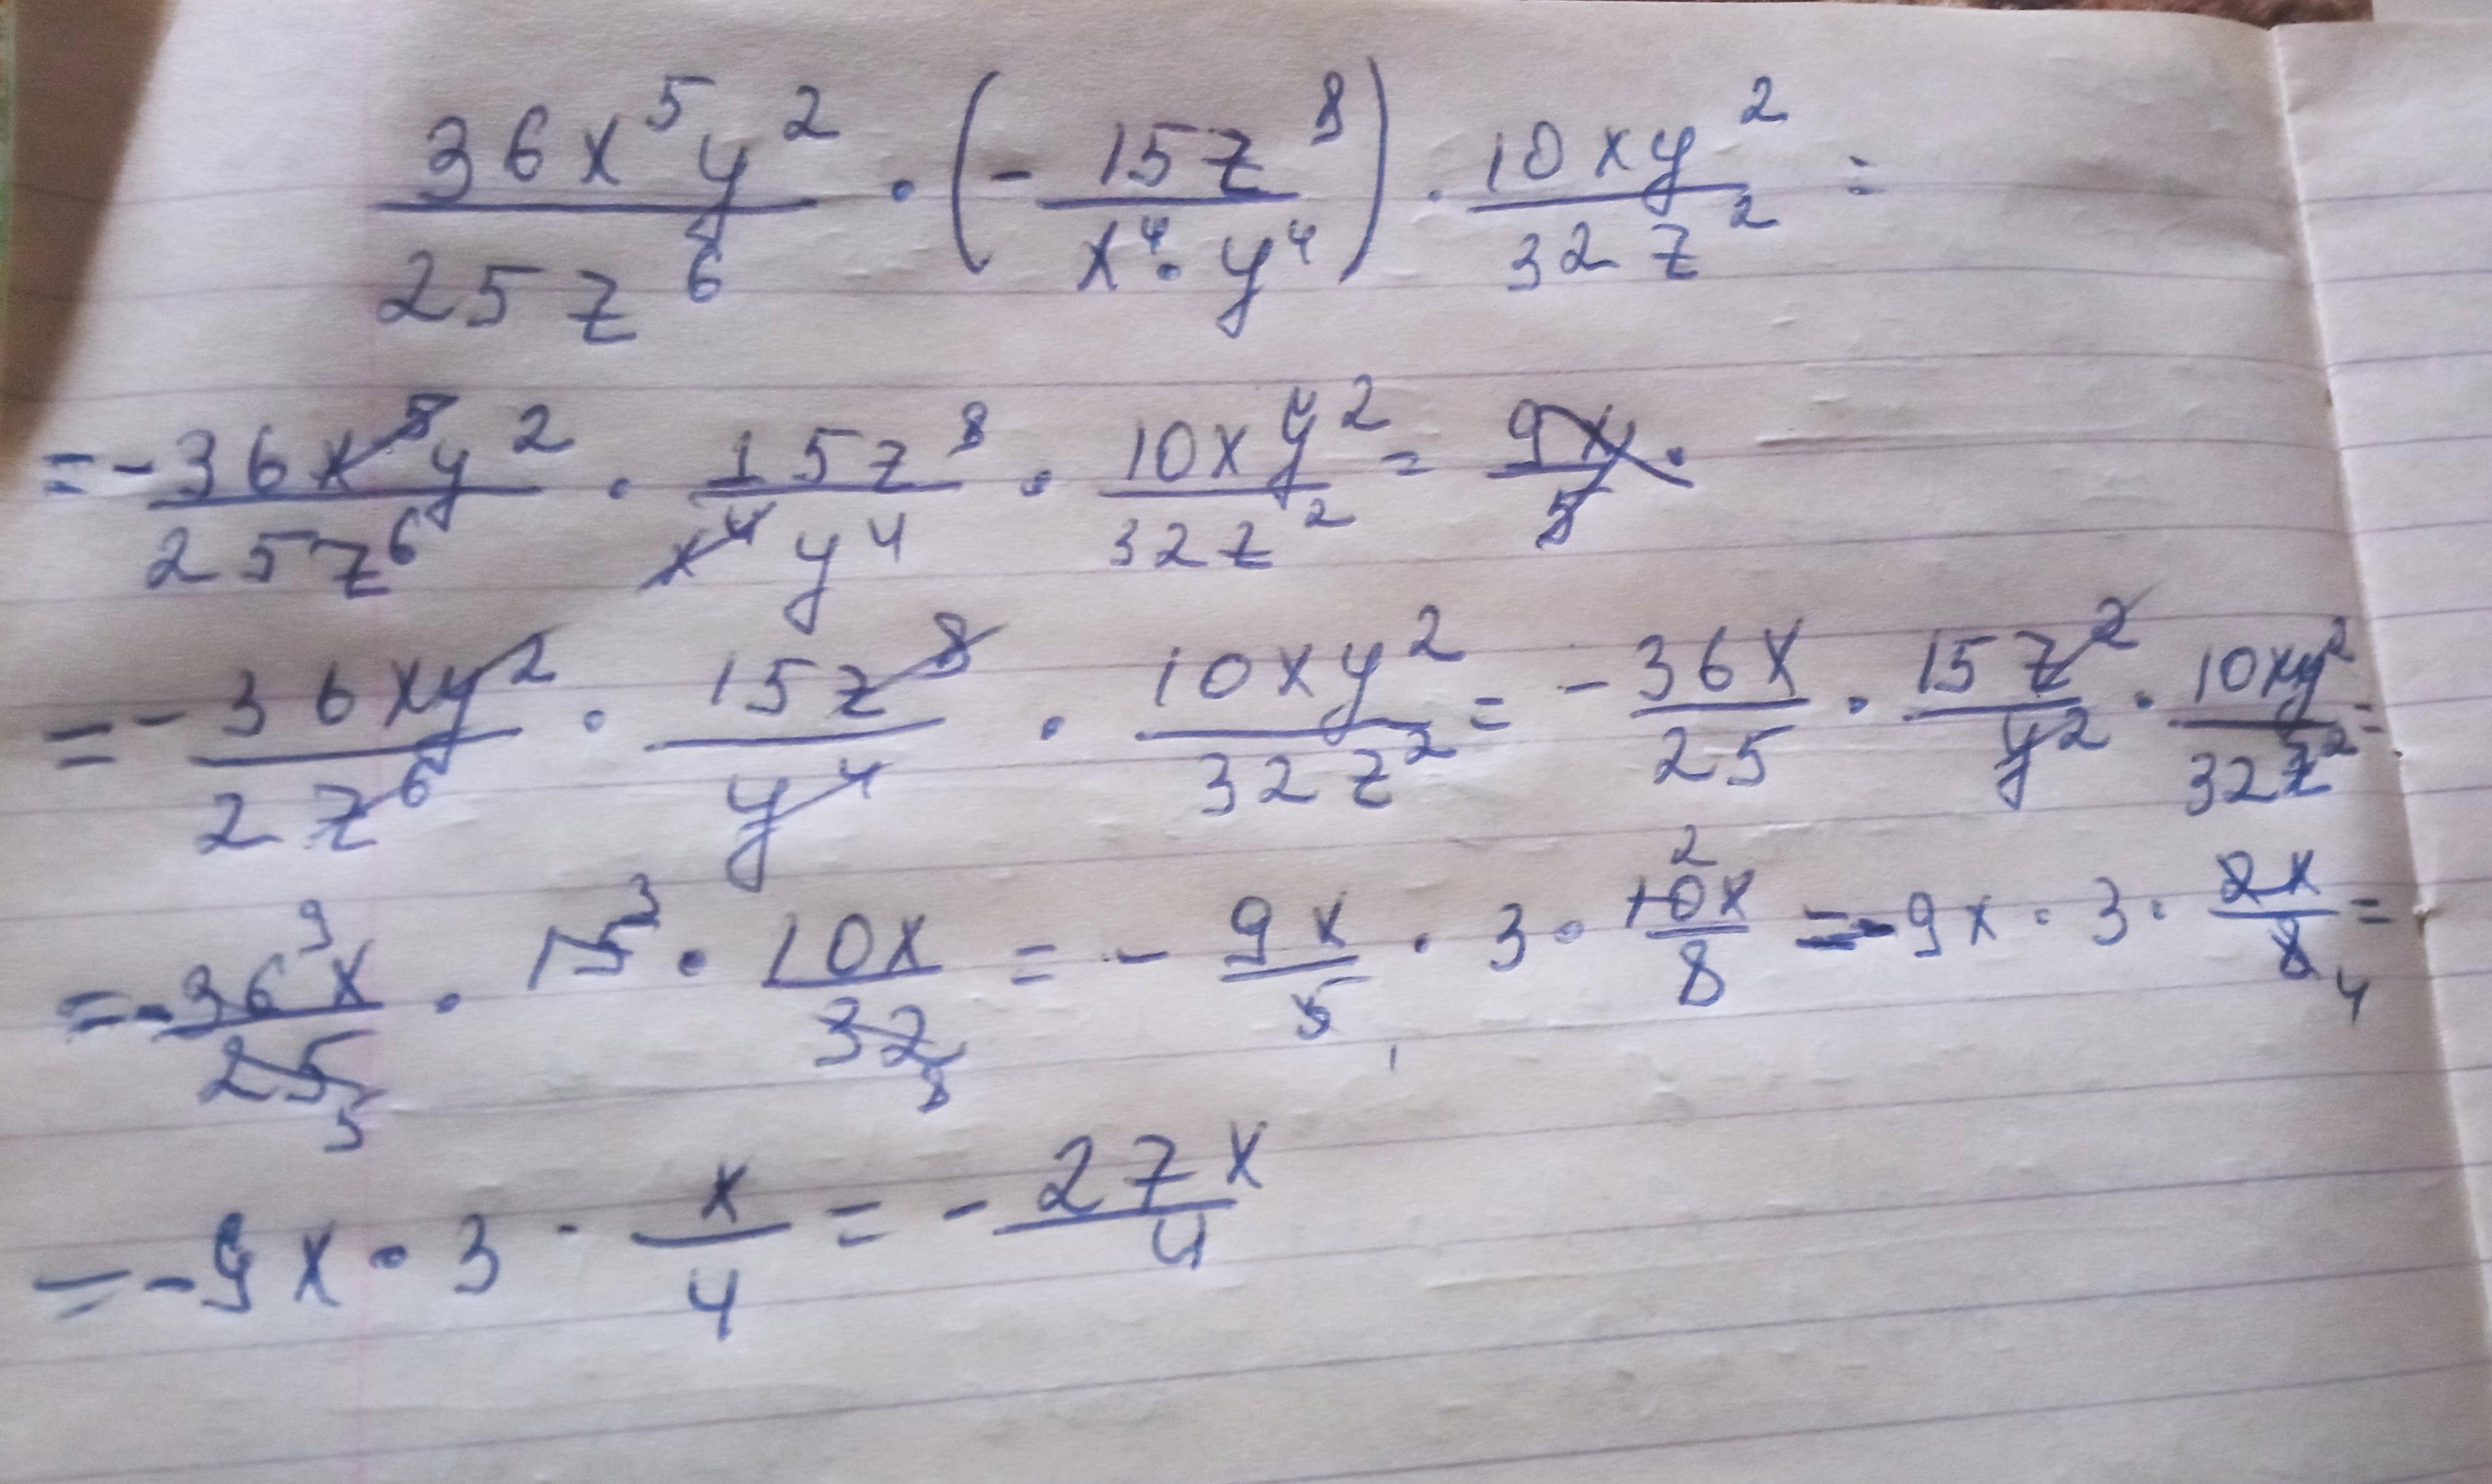 36x⁵y²/25z⁶ · (- 15z⁸/x⁴·y⁴) · 10xy²/32z² =
= - 36x⁵y²/25z⁶ · 15z⁸/x⁴y⁴ · 10xy²/32z² = 9x/5 ·
= - 36xy²/2z⁶ · 15z⁸/y⁴ · 10xy²/32z² = - 36x/25 · 15z²/y² · 10xy²/32z² =
= - 36⁹x/25₅ · 15³ · 10x/32₈ = - 9x/5 · 3 · 10²x/8 = - 9x · 3 · 2x/8₄ =
= - 9x · 3 · x/4 = - 27x/4